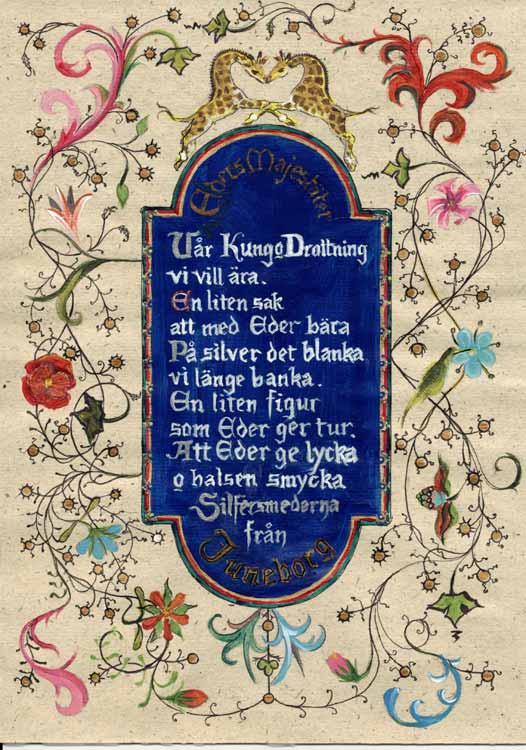 Eders Majestäter
Vår Kung o Drottning
vi vill ära.
En liten sak
att med Eder bära
På silver det blanka
vi länge banka.
En liten figur
som Eder ger tur.
Att Eder ge lycka
o halsen smycka
Silfersmederna
från
Juneborg